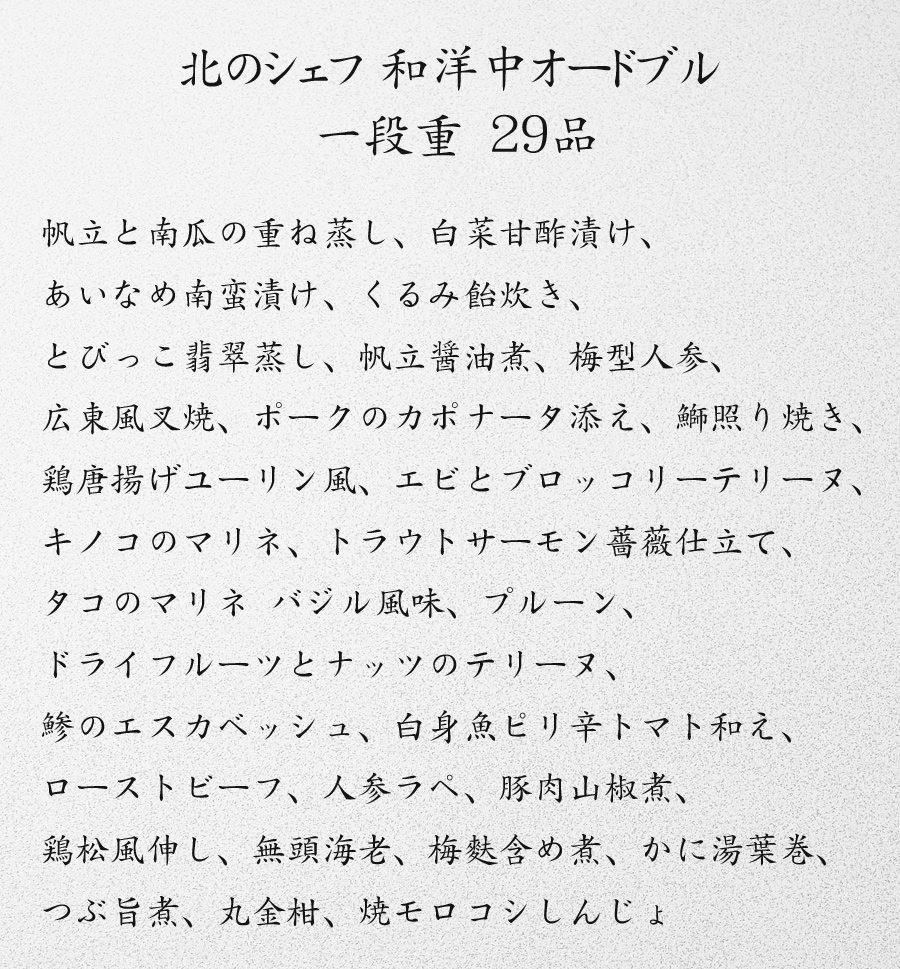 北のシェフ 和洋中オードブル
一段重 29品
帆立と南瓜の重ね蒸し、白菜甘酢漬け、
あいなめ南蛮漬け、くるみ飴炊き、
とびっこ翡翠蒸し、帆立醤油煮、梅型人参、
広東風叉焼、ポークのカポナータ添え、鰤照り焼き、
鶏唐揚げユーリン風、エビとブロッコリーテリーヌ、
キノコのマリネ、トラウトサーモン薔薇仕立て、
タコのマリネ バジル風味、プルーン、
ドライフルーツとナッツのテリーヌ、
鯵のエスカベッシュ、白身魚ピリ辛トマト和え、
ローストビーフ、人参ラペ、豚肉山椒煮、
鶏松風伸し、無頭海老、梅麩含め煮、かに湯葉巻、
つぶ旨煮、丸金柑、焼モロコシしんじょ